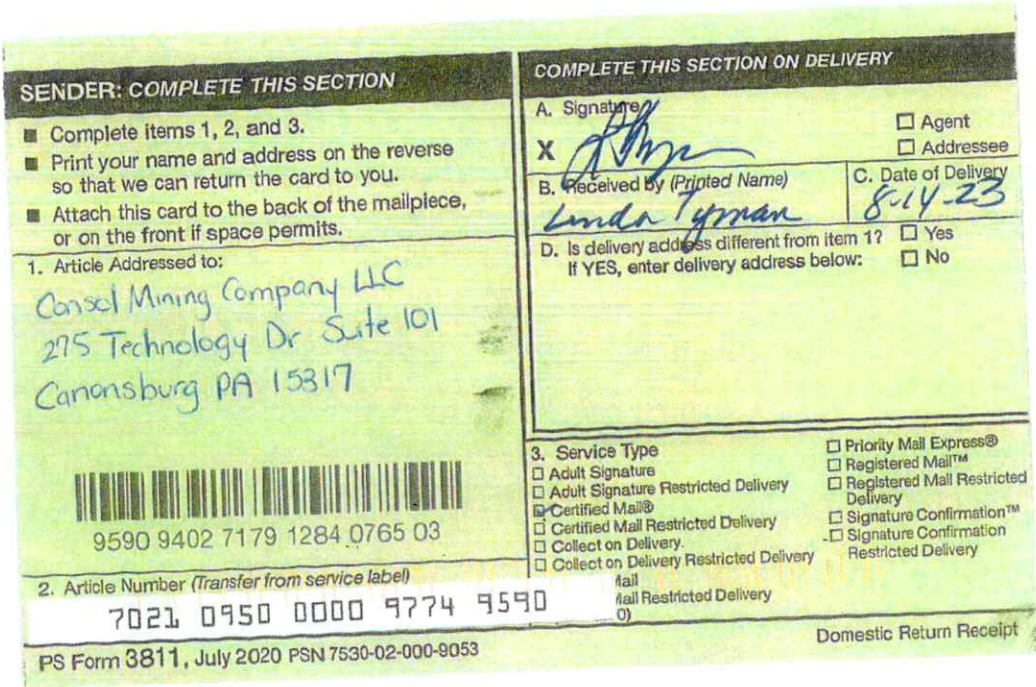 SENDER: COMPLETE THIS SECTION
■ Complete items 1, 2, and 3.
■ Print your name and address on the reverse
so that we can return the card to you.
■ Attach this card to the back of the mailpiece,
or on the front if space permits.
1. Article Addressed to:
Consol Mining Company LLC
275 Technology Dr Suite 101
Canonsburg PA 15317
9590 9402 7179 1284 0765 03
2. Article Number (Transfer from service label)
7021 0950 0000 9774 9590
COMPLETE THIS SECTION ON DELIVERY
A. Signature
X
☐ Agent
☐ Addressee
B. Received by (Printed Name)
Linda Tyman
C. Date of Delivery
8-14-23
D. Is delivery address different from item 1? ☐ Yes
If YES, enter delivery address below: ☐ No
3. Service Type
☐ Adult Signature
☐ Adult Signature Restricted Delivery
☑ Certified Mail®
☐ Certified Mail Restricted Delivery
☐ Collect on Delivery
☐ Collect on Delivery Restricted Delivery
Mail
Mail Restricted Delivery
0)
☐ Priority Mail Express®
☐ Registered Mail™
☐ Registered Mail Restricted
Delivery
☐ Signature Confirmation™
☐ Signature Confirmation
Restricted Delivery
PS Form 3811, July 2020 PSN 7530-02-000-9053
Domestic Return Receipt